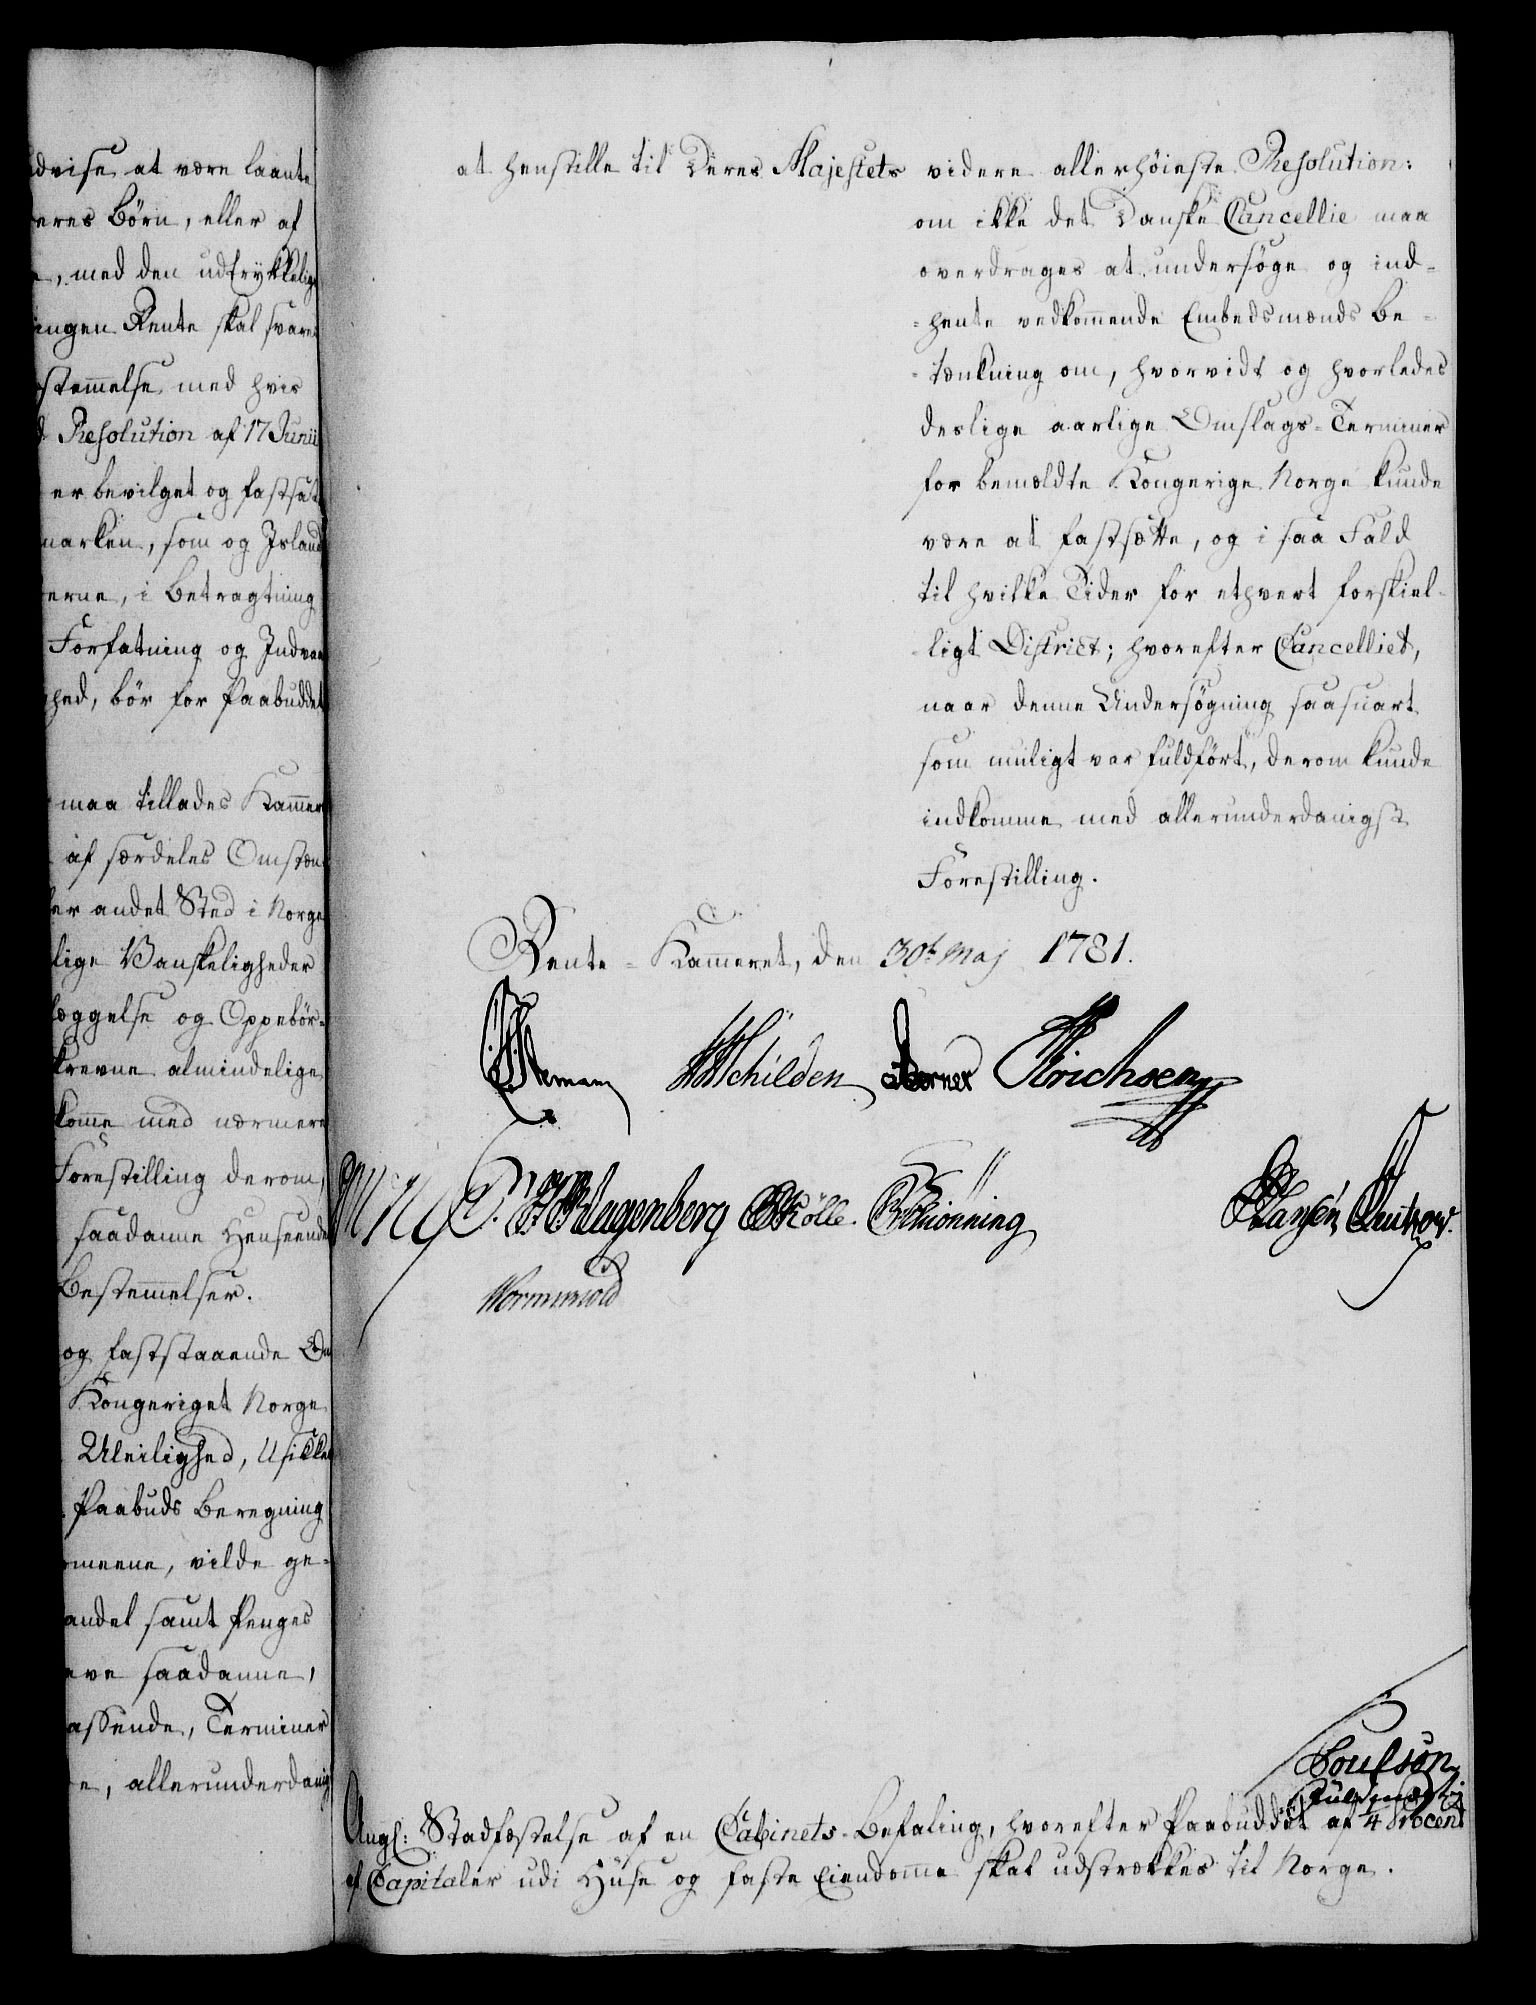 dvise at være laante
eres Börn, eller af
, med den udtrykkelig
ingen Rente skal svare
stemmelse med hvis
Resolution af 17 Junii
er bevilget og fastsat
marken, som og Island
erne, i Betragtning
Forfatning og Indvaa
hed, bör for Paabuddet
maa tillades Kammer
af særdeles Omstæn
er andet Sted i Norge
lige Vanskeligheder
læggelse og Oppebör-
krevne almindelige
komme med nærmere
Forestilling derom,
saadanne Henseende
Bestemmelser.
og faststaaende Om
Kongeriget Norge
Uleilighed, Usikker
Paabuds Beregning
meene, vilde ge-
andel samt Penges
eve saadanne,
assende, Terminer
e, allerunderdanig
at henstille til Deres Majestets videre allerhöieste Resolution:
om ikke det Danske Cancellie maa
overdrages at undersöge og ind-
-hente vedkommende Embedsmænds Be-
-tænkning om, hvorvidt og hvorledes
deslige aarlige Omslags-Terminer
for bemældte Kongerige Norge kunde
være at fastsætte, og i saa Fald
til hvilke Tider for ethvert forskiel-
-ligt District; hvorefter Cancelliet,
naar denne Undersögning saasnart
som muligt var fuldfört, derom kunde
indkomme med allerunderdanigst
Forestilling.
Rente-Kammeret, den 30t Maj 1781.
Stemann Schilden Erichsen
Klagenberg Kölle Schiönning Hansen Lützow.
Wormskiold
Poulsön
Fuldmægtig
Angl: Stadfæstelse af en Cabinets-Befaling, hvorefter Paabuddet af 1/4 Procent
af Capitaler udi Huse og faste Eiendomme skal udstrækkes til Norge.